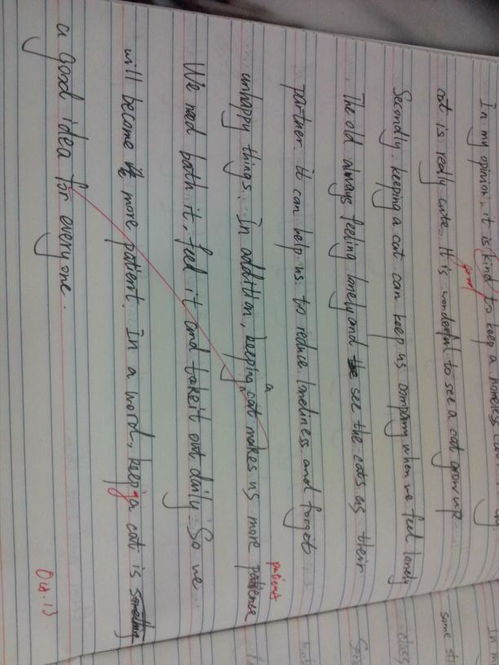 In my opinion, it is kind to keep a homeless
cat is really cute. It is wonderful to see a cat grow up
Secondly, keeping a cat can keep us company when we feel lonely
The old always feeling lonely and see the cats as their
partner. it can help us to reduce loneliness and forgets
unhappy things. In addition, keeping a cat makes us more patience
patient
We need bath it, feed it and take it out daily. So we
will become more patient. In a word, keep a cat is
a good idea for everyone.